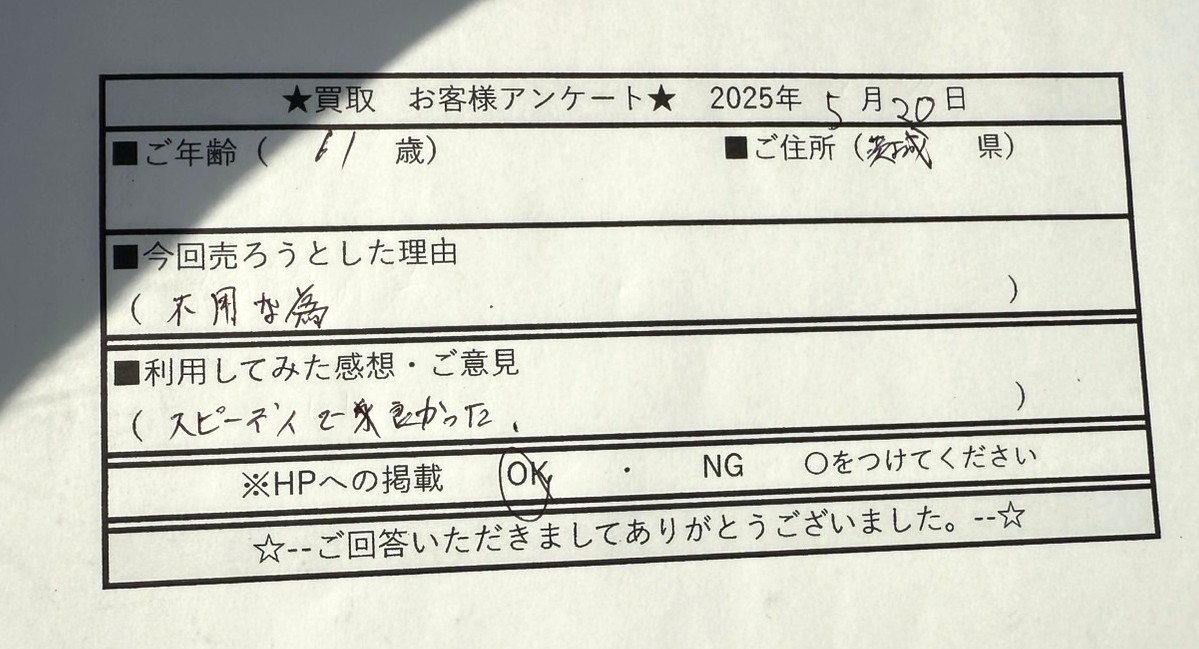 ★買取 お客様アンケート★ 2025年 5月20日
■ご年齢( 61 歳) ■ご住所(茨城 県)
■今回売ろうとした理由
(不用な為 )
■利用してみた感想・ご意見
(スピーディで良かった. )
※HPへの掲載 OK ・ NG ○をつけてください
☆--ご回答いただきましてありがとうございました。--☆